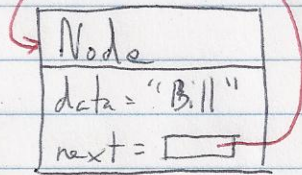 Node
data = "Bill"
next =